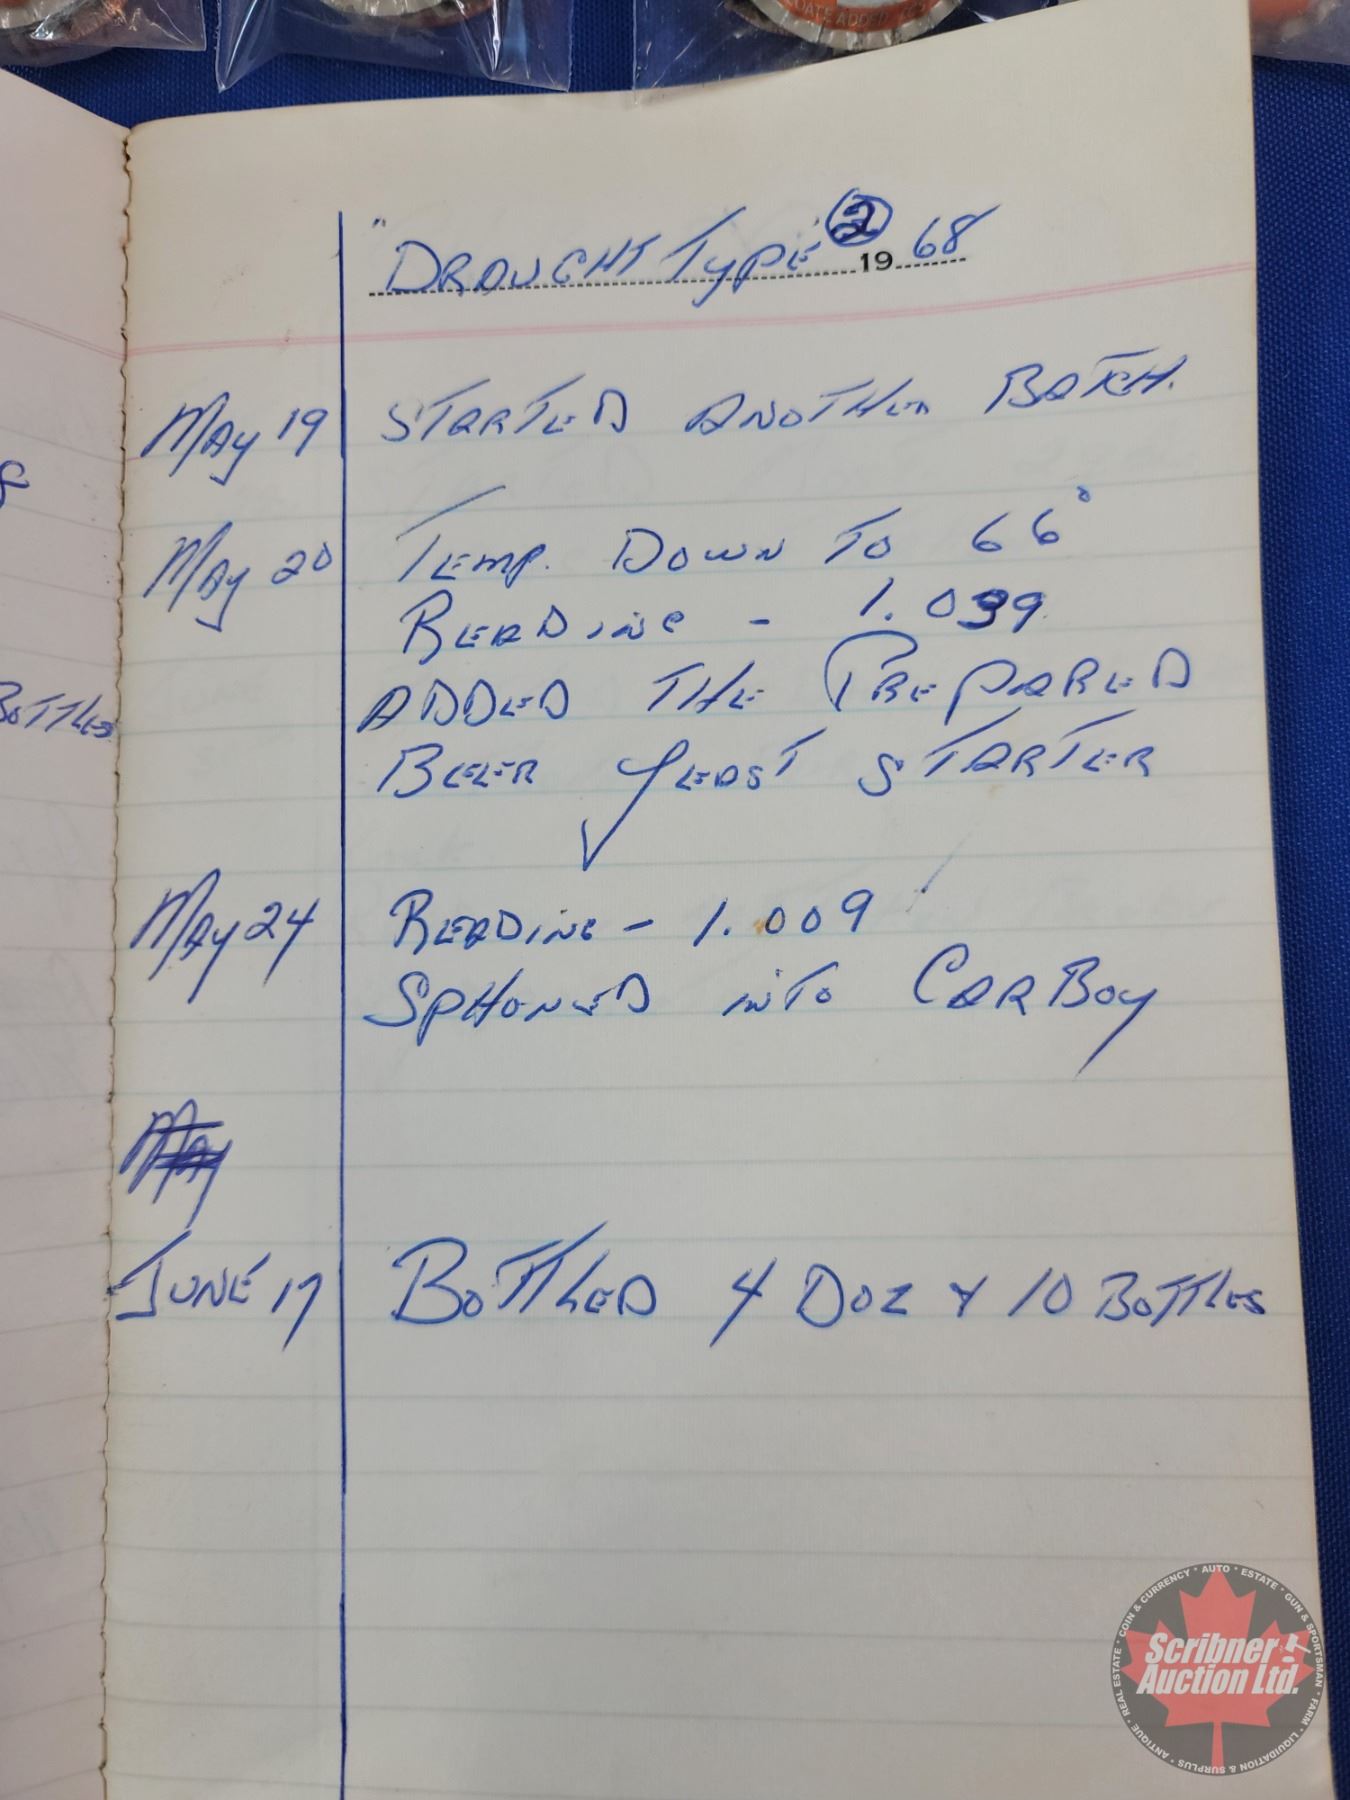 DATE ADDED
"DRAUGHT TYPE" ② 1968
MAY 19 STARTED ANOTHER BATCH.
MAY 20 TEMP. DOWN TO 66°
READING - 1.039
ADDED THE PREPARED
BEER YEAST STARTER
MAY 24 READING - 1.009
SPHONED INTO CARBOY
MAY
JUNE 17 BOTTLED 4 DOZ & 10 BOTTLES
BOTTLES
Scribner
Auction Ltd.
COIN & CURRENCY • AUTO • ESTATE • GUN & SPORTSMAN • FARM • LIQUIDATION & SURPLUS • ANTIQUE • REAL ESTATE